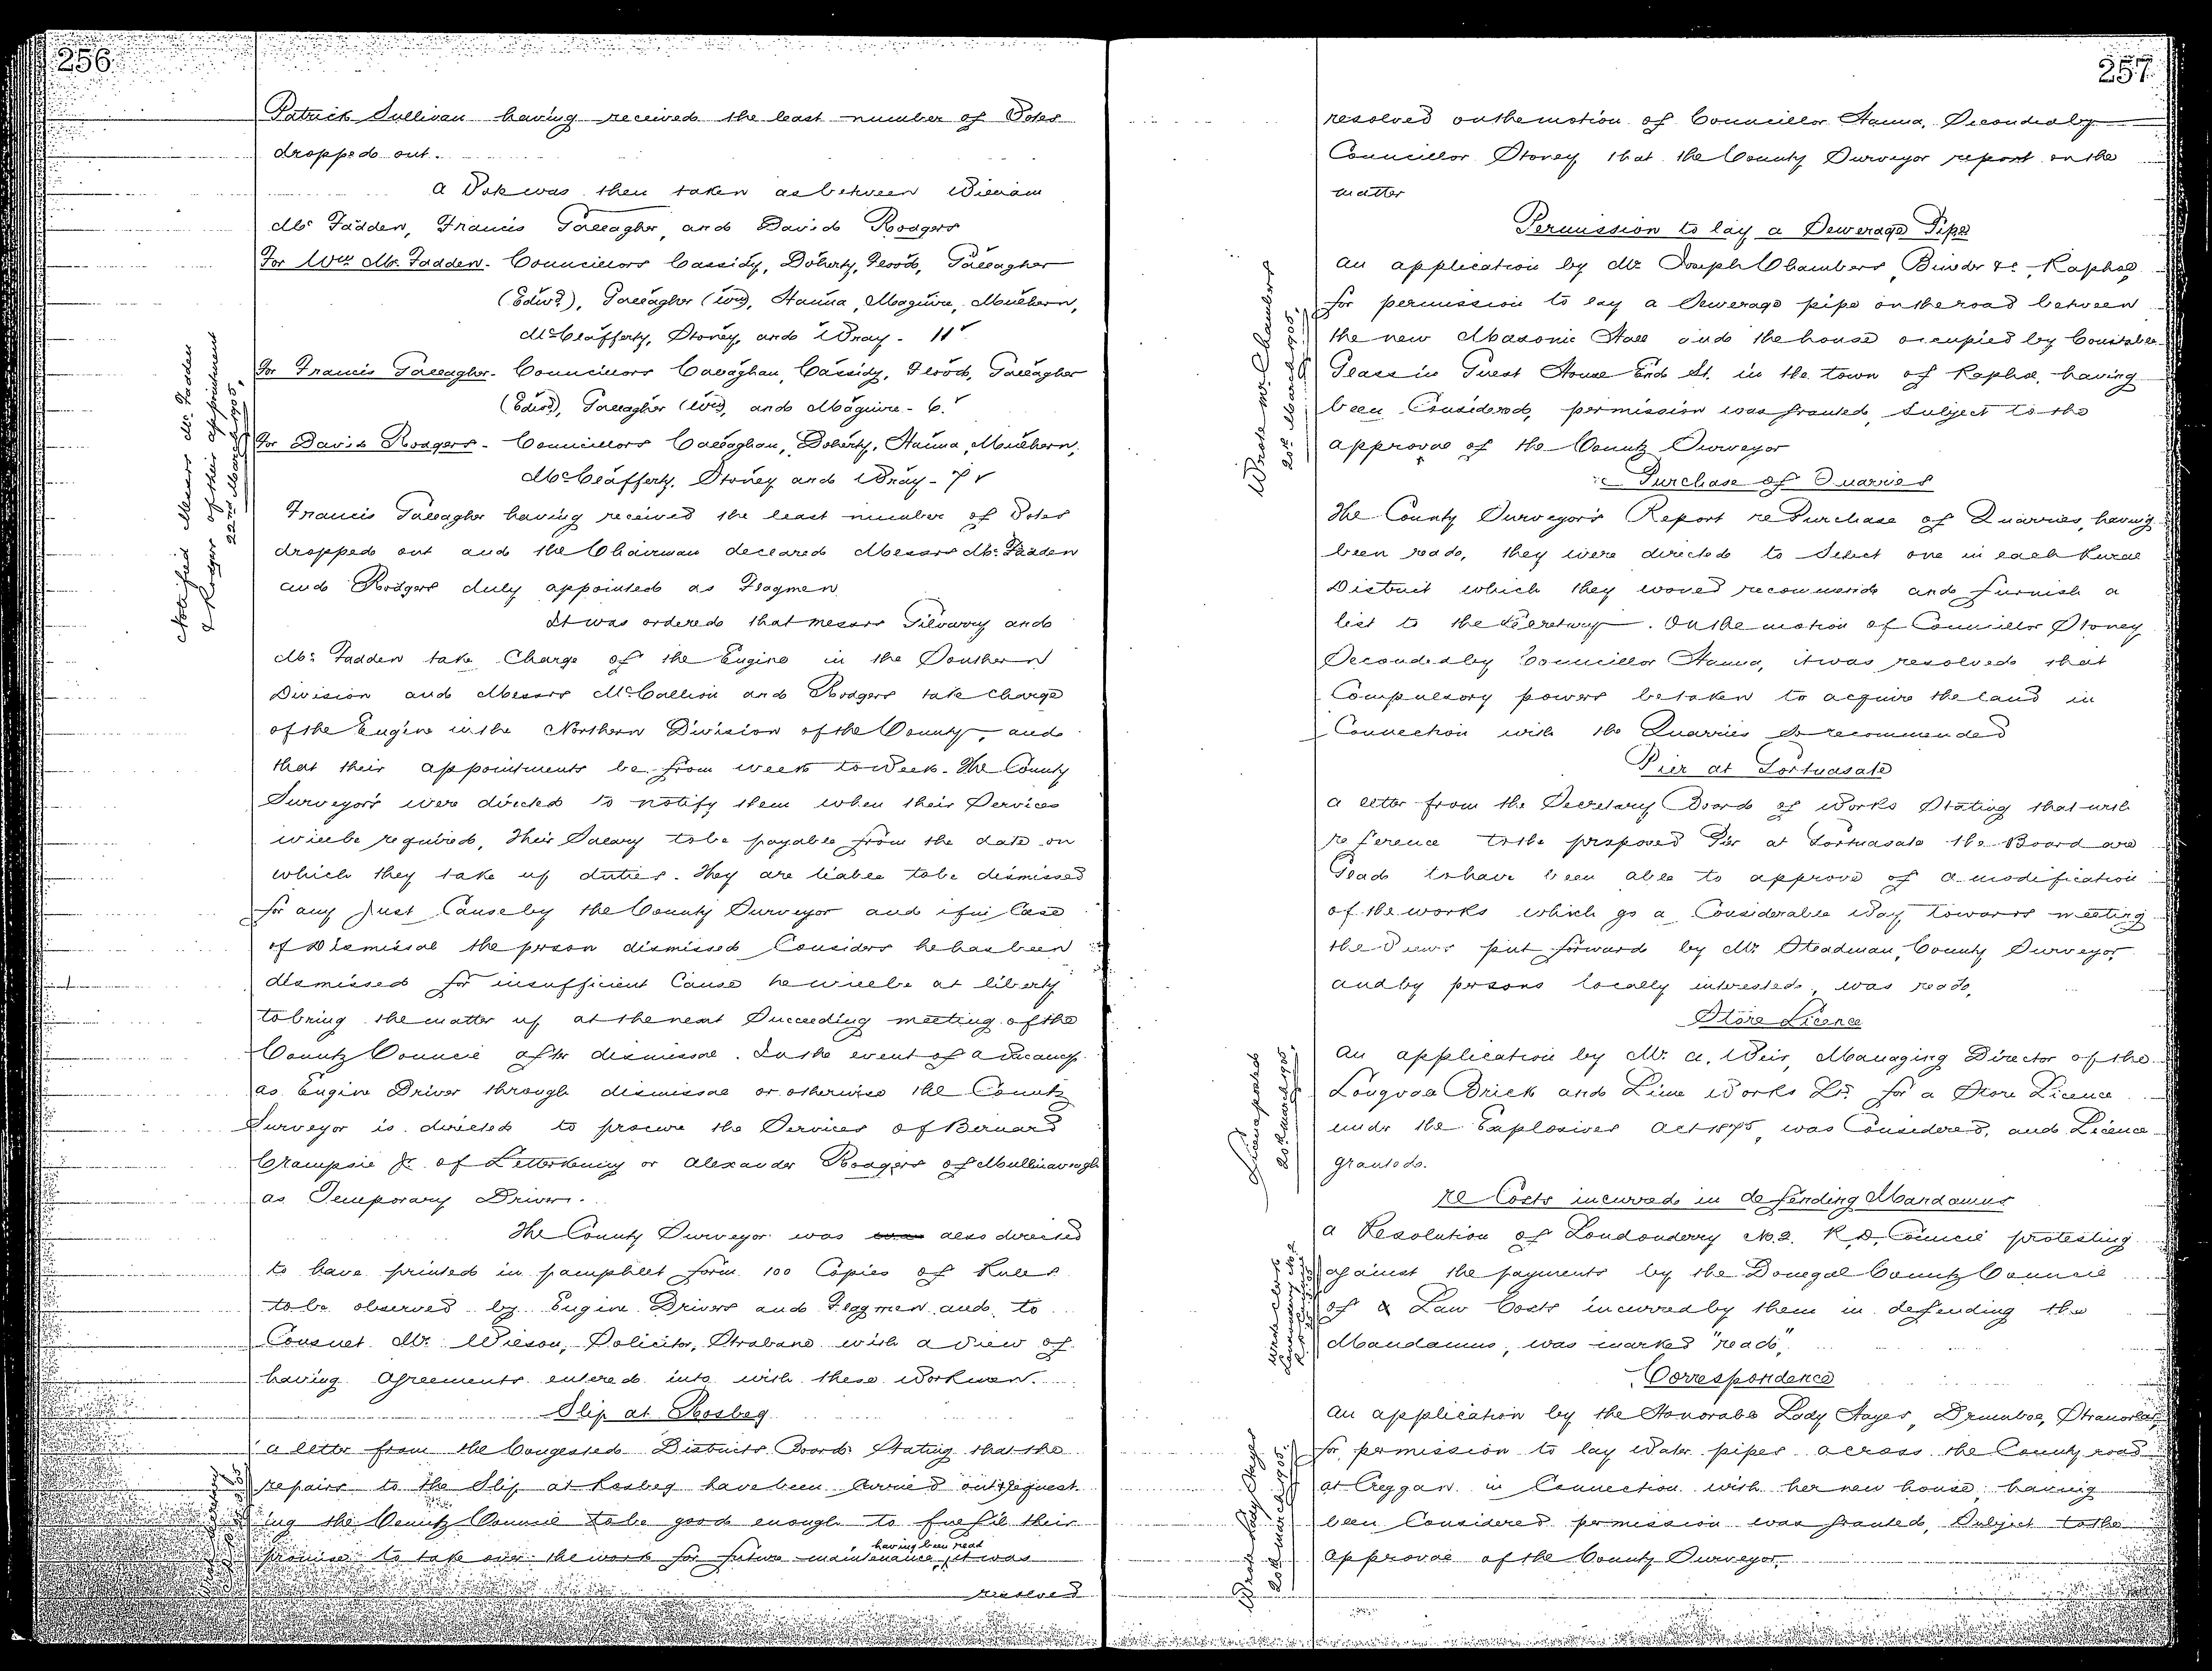 256
Patrick Sullivan having received the least number of Votes
dropped out.
A Vote was then taken as between William
Mc Fadden, Francis Gallagher, and David Rodgers
For Wm Mc Fadden - Councillors Cassidy, Doherty, Flood, Gallagher
(Edwd), Gallagher (Wm), Hanna, Maguire, Mulhern,
McClafferty, Stoney, and Wray - 11
For Francis Gallagher - Councillors Callaghan, Cassidy, Flood, Gallagher
(Edwd), Gallagher (Wm), and Maguire - 6.
For David Rodgers - Councillors Callaghan, Doherty, Hanna, Mulhern,
McClafferty, Stoney and Wray - 7
Francis Gallagher having received the least number of Votes
dropped out and the Chairman declared Messrs Mc Fadden
and Rodgers duly appointed as Flagmen
Notified Messrs Mc Fadden
& Rodgers of their appointment
22nd March 1905.
It was ordered that messrs Gilvarry and
Mc Fadden take Charge of the Engine in the Southern
Division and Messrs McCallion and Rodgers take charge
of the Engine in the Northern Division of the County, and
that their appointments be from week to week. The County
Surveyors were directed to notify them when their Services
will be required, their Salary to be payable from the date on
which they take up duties. They are liable to be dismissed
for any Just Cause by the County Surveyor and if in Case
of Dismissal the person dismissed Considers he has been
dismissed for insufficient Cause he will be at liberty
to bring the matter up at the next Succeeding meeting of the
County Council after dismissal. In the event of a Vacancy
as Engine Driver through dismissal or otherwise the County
Surveyor is directed to procure the Services of Bernard
Crampsie Jr. of Letterkenny or Alexander Rodgers of
as Temporary Driver.
The County Surveyor was also directed
to have printed in pamphlet form 100 Copies of Rules
to be observed by Engine Drivers and Flagmen and to
Consult Mr. Wilson, Solicitor, Strabane with a view of
having Agreements entered into with these Workmen.
Slip at Rosbeg
A letter from the Congested Districts Board Stating that the
repairs to the Slip at Rosbeg have been Carried out & request
ing the County Council to be good enough to fulfil their
promise to take over the work for future maintenance, having been read it was
resolved
257
resolved on the motion of Councillor Hanna, Seconded by
Councillor Stoney that the County Surveyor report on the
matter
Permission to lay a Sewerage Pipe
An application by Mr Joseph Chambers, Builder &c, Raphoe,
for permission to lay a Sewerage pipe on the road between
the new Masonic Hall and the house occupied by Constable
Glass in Guest House End St. in the town of Raphoe, having
been Considered, permission was granted, Subject to the
approval of the County Surveyor
Wrote Mr. Chambers
20th March 1905.
re Purchase of Quarries
The County Surveyors Report re Purchase of Quarries, having
been read, they were directed to Select one in each Rural
District which they would recommend and furnish a
list to the Secretary. On the motion of Councillor Stoney
Seconded by Councillor Hanna, it was resolved that
Compulsory powers be taken to acquire the land in
Connection with the Quarries So recommended
Pier at Portnasate
A letter from the Secretary Board of Works Stating that with
reference to the proposed Pier at Portnasate the Board are
Glad to have been able to approve of a modification
of the works which go a Considerable Way towards meeting
the Views put forward by Mr Steadman, County Surveyor
and by persons locally interested, was read.
Store Licence
An application by Mr. A. Weir, Managing Director of the
Brick and Lime Works Ld. for a Store Licence
under the Explosives Act 1875, was Considered, and Licence
granted.
Licence posted
20th March 1905.
re Costs incurred in defending Mandamus
A Resolution of Londonderry No. 2. R. D. Council protesting
against the payments by the Donegal County Council
of Law Costs incurred by them in defending the
Mandamus, was marked "read".
Wrote Clerk
Londonderry No. 2
Correspondence
An application by the Honorable Lady Hayes, Drumboe, Stranorlar,
for permission to lay Water pipes across the County road
at Creggan in Connection with her new house, having
been Considered permission was granted, Subject to the
approval of the County Surveyor.
Wrote Lady Hayes
20th March 1905.